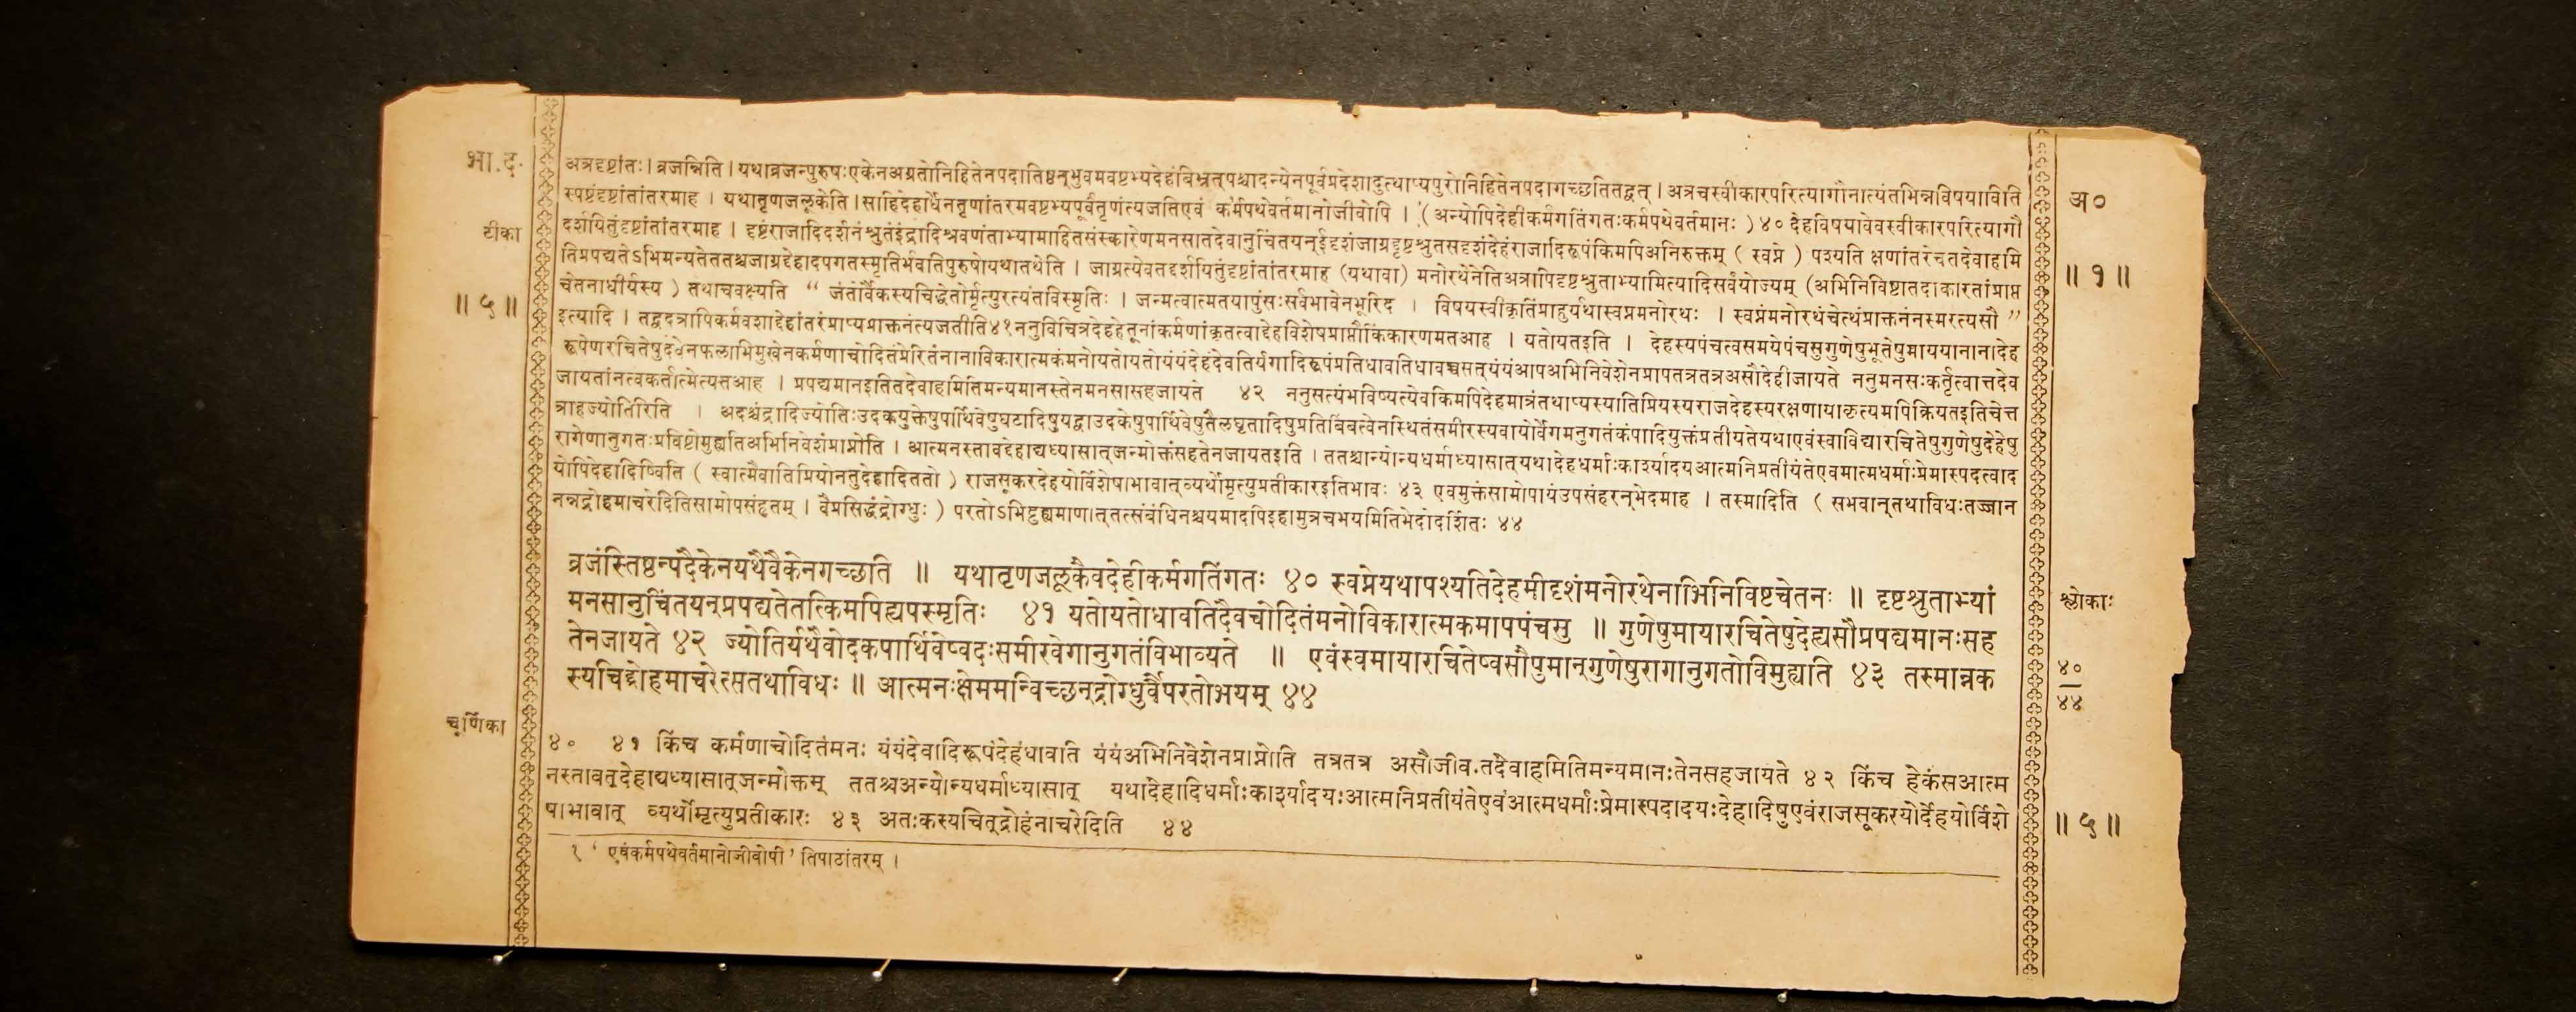 भा.द.
टीका
॥ ५ ॥
अत्रदृष्टांतः । व्रजन्निति । यथाव्रजन्पुरुषःएकेनअग्रतोनिहितेनपदातिष्ठन्भुवमवष्टभ्यदेहंबिभ्रत्पश्चादन्येनपूर्वप्रदेशादुत्थाप्यपुरोनिहितेनपदागच्छतितद्वत् । अत्रचस्वीकारपरित्यागौनात्यंतभिन्नविषयाविति
स्पष्टंदृष्टांतांतरमाह । यथातृणजलूकेति । साहिदेहार्धेनतृणांतरमवष्टभ्यपूर्वंतृणंत्यजतिएवं कर्मपथेवर्तमानोजीवोपि । (अन्योपिदेहीकर्मगतिंगतःकर्मपथेवर्तमानः ) ४० देहविषयावेवस्वीकारपरित्यागौ
दर्शयितुंदृष्टांतांतरमाह । दृष्टंराजादिदर्शनंश्रुतंइंद्रादिश्रवणंताभ्यामाहितसंस्कारेणमनसातदेवानुचिंतयन्ईदृशंजाग्रद्दृष्टश्रुतसदृशंदेहंराजादिरूपंकिमपिअनिरुक्तम् ( स्वप्ने ) पश्यति क्षणांतरेचतदेवाहमि
तिप्रपद्यतेऽभिमन्यतेततश्चजाग्रद्देहादपगतस्मृतिर्भवतिपुरुषोयथातथेति । जाग्रत्येवतद्दर्शयितुंदृष्टांतांतरमाह (यथावा) मनोरथेनेतिअत्रापिदृष्टश्रुताभ्यामित्यादिसर्वंयोज्यम् (अभिनिविष्टातदाकारतांप्राप्त
चेतनाधीर्यस्य ) तथाचवक्ष्यति “ जंतोर्वैकस्यचिद्धेतोर्मृत्युरत्यंतविस्मृतिः । जन्मत्वात्मतयापुंसःसर्वभावेनभूरिद । विषयस्वीकृतिंप्राहुर्यथास्वप्नमनोरथः । स्वप्नंमनोरथंचेत्थंप्राक्तनंनस्मरत्यसौ ”
इत्यादि । तद्वदत्रापिकर्मवशाद्देहांतरंप्राप्यप्राक्तनंत्यजतीति४१ननुविचित्रदेहहेतूनांकर्मणांकृतत्वाद्देहविशेषप्राप्तौकिंकारणमतआह । यतोयतइति । देहस्यपंचत्वसमयेपंचसुगुणेषुभूतेषुमाययानानादेह
रूपेणरचितेषुदैवेनफलाभिमुखेनकर्मणाचोदितंप्रेरितंनानाविकारात्मकंमनोयतोयतोयंयंदेहंदेवतिर्यगादिरूपंप्रतिधावतिधावच्चसत्यंयंआपअभिनिवेशेनप्रापतत्रतत्रअसौदेहीजायते ननुमनसःकर्तृत्वात्तदेव
जायतांनत्वकर्तात्मेत्यतआह । प्रपद्यमानइतितदेवाहमितिमन्यमानस्तेनमनसासहजायते ४२ ननुसत्यंभविष्यत्येवकिमपिदेहमात्रंतथाप्यस्यातिप्रियस्यराजदेहस्यरक्षणायाकृत्यमपिक्रियतइतिचेत्त
त्राहज्योतिरिति । अदश्चंद्रादिज्योतिःउदकयुक्तेषुपार्थिवेषुघटादिषुयद्वाउदकेषुपार्थिवेषुतैलघृतादिषुप्रतिबिंबत्वेनस्थितंसमीरस्यवायोर्वेगमनुगतंकंपादियुक्तंप्रतीयतेयथाएवंस्वाविद्यारचितेषुगुणेषुदेहेषु
रागेणानुगतःप्रविष्टोमुह्यतिअभिनिवेशंप्राप्नोति । आत्मनस्तावद्देहाद्यध्यासात्जन्मोक्तंसहतेनजायतइति । ततश्चान्योन्यधर्माध्यासात्यथादेहधर्माःकार्श्यादयआत्मनिप्रतीयंतेएवमात्मधर्माःप्रेमास्पदत्वाद
योपिदेहादिष्विति ( स्वात्मैवातिप्रियोनतुदेहादिततो ) राजसूकरदेहयोर्विशेषाभावात्व्यर्थोमृत्युप्रतीकारइतिभावः ४३ एवमुक्तंसामोपायंउपसंहरन्भेदमाह । तस्मादिति ( सभवान्तथाविधःतज्जान
नन्नद्रोहमाचरेदितिसामोपसंहृतम् । वैप्रसिद्धंद्रोग्धुः ) परतोऽभिद्रुह्यमाणात्तत्संबंधिनश्चयमादपिइहामुत्रचभयमितिभेदोदर्शितः ४४
व्रजंस्तिष्ठन्पदैकेनयथैवैकेनगच्छति ॥ यथातृणजलूकैवंदेहीकर्मगतिंगतः ४० स्वप्नेयथापश्यतिदेहमीदृशंमनोरथेनाभिनिविष्टचेतनः ॥ दृष्टश्रुताभ्यां
मनसानुचिंतयन्प्रपद्यतेतत्किमपिह्यपस्मृतिः ४१ यतोयतोधावतिदैवचोदितंमनोविकारात्मकमापपंचसु ॥ गुणेषुमायारचितेषुदेह्यसौप्रपद्यमानःसह
तेनजायते ४२ ज्योतिर्यथैवोदकपार्थिवेष्वदःसमीरवेगानुगतंविभाव्यते ॥ एवंस्वमायारचितेष्वसौपुमान्गुणेषुरागानुगतोविमुह्यति ४३ तस्मान्नक
स्यचिद्द्रोहमाचरेत्सतथाविधः ॥ आत्मनःक्षेममन्विच्छन्द्रोग्धुर्वैपरतोभयम् ४४
चूर्णिका
४० ४१ किंच कर्मणाचोदितंमनः यंयंदेवादिरूपंदेहंधावति यंयंअभिनिवेशेनप्राप्नोति तत्रतत्र असौजीवःतदेवाहमितिमन्यमानःतेनसहजायते ४२ किंच हेकंसआत्म
नस्तावत्देहाद्यध्यासात्जन्मोक्तम् ततश्चअन्योन्यधर्माध्यासात् यथादेहादिधर्माःकार्श्यादयःआत्मनिप्रतीयंतेएवंआत्मधर्माःप्रेमास्पदादयःदेहादिषुएवंराजसूकरयोर्देहयोर्विशे
षाभावात् व्यर्थोमृत्युप्रतीकारः ४३ अतःकस्यचित्द्रोहंनाचरेदिति ४४
१ ‘ एवंकर्मपथेवर्तमानोजीवोपी ’ तिपाठांतरम् ।
अ०
॥ १ ॥
श्लोकाः
४०
४४
॥ ५ ॥